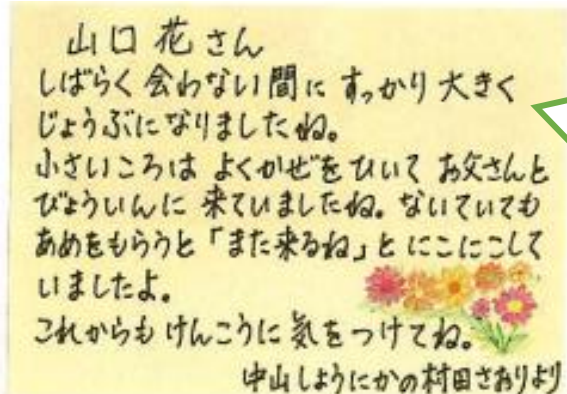 山口花さん
しばらく会わない間にすっかり大きく
じょうぶになりましたね。
小さいころはよくかぜをひいてお父さんと
びょういんに来ていましたね。ないていても
あめをもらうと「また来るね」とにこにこして
いましたよ。
これからもけんこうに気をつけてね。
中山しょうにかの村田さおりより